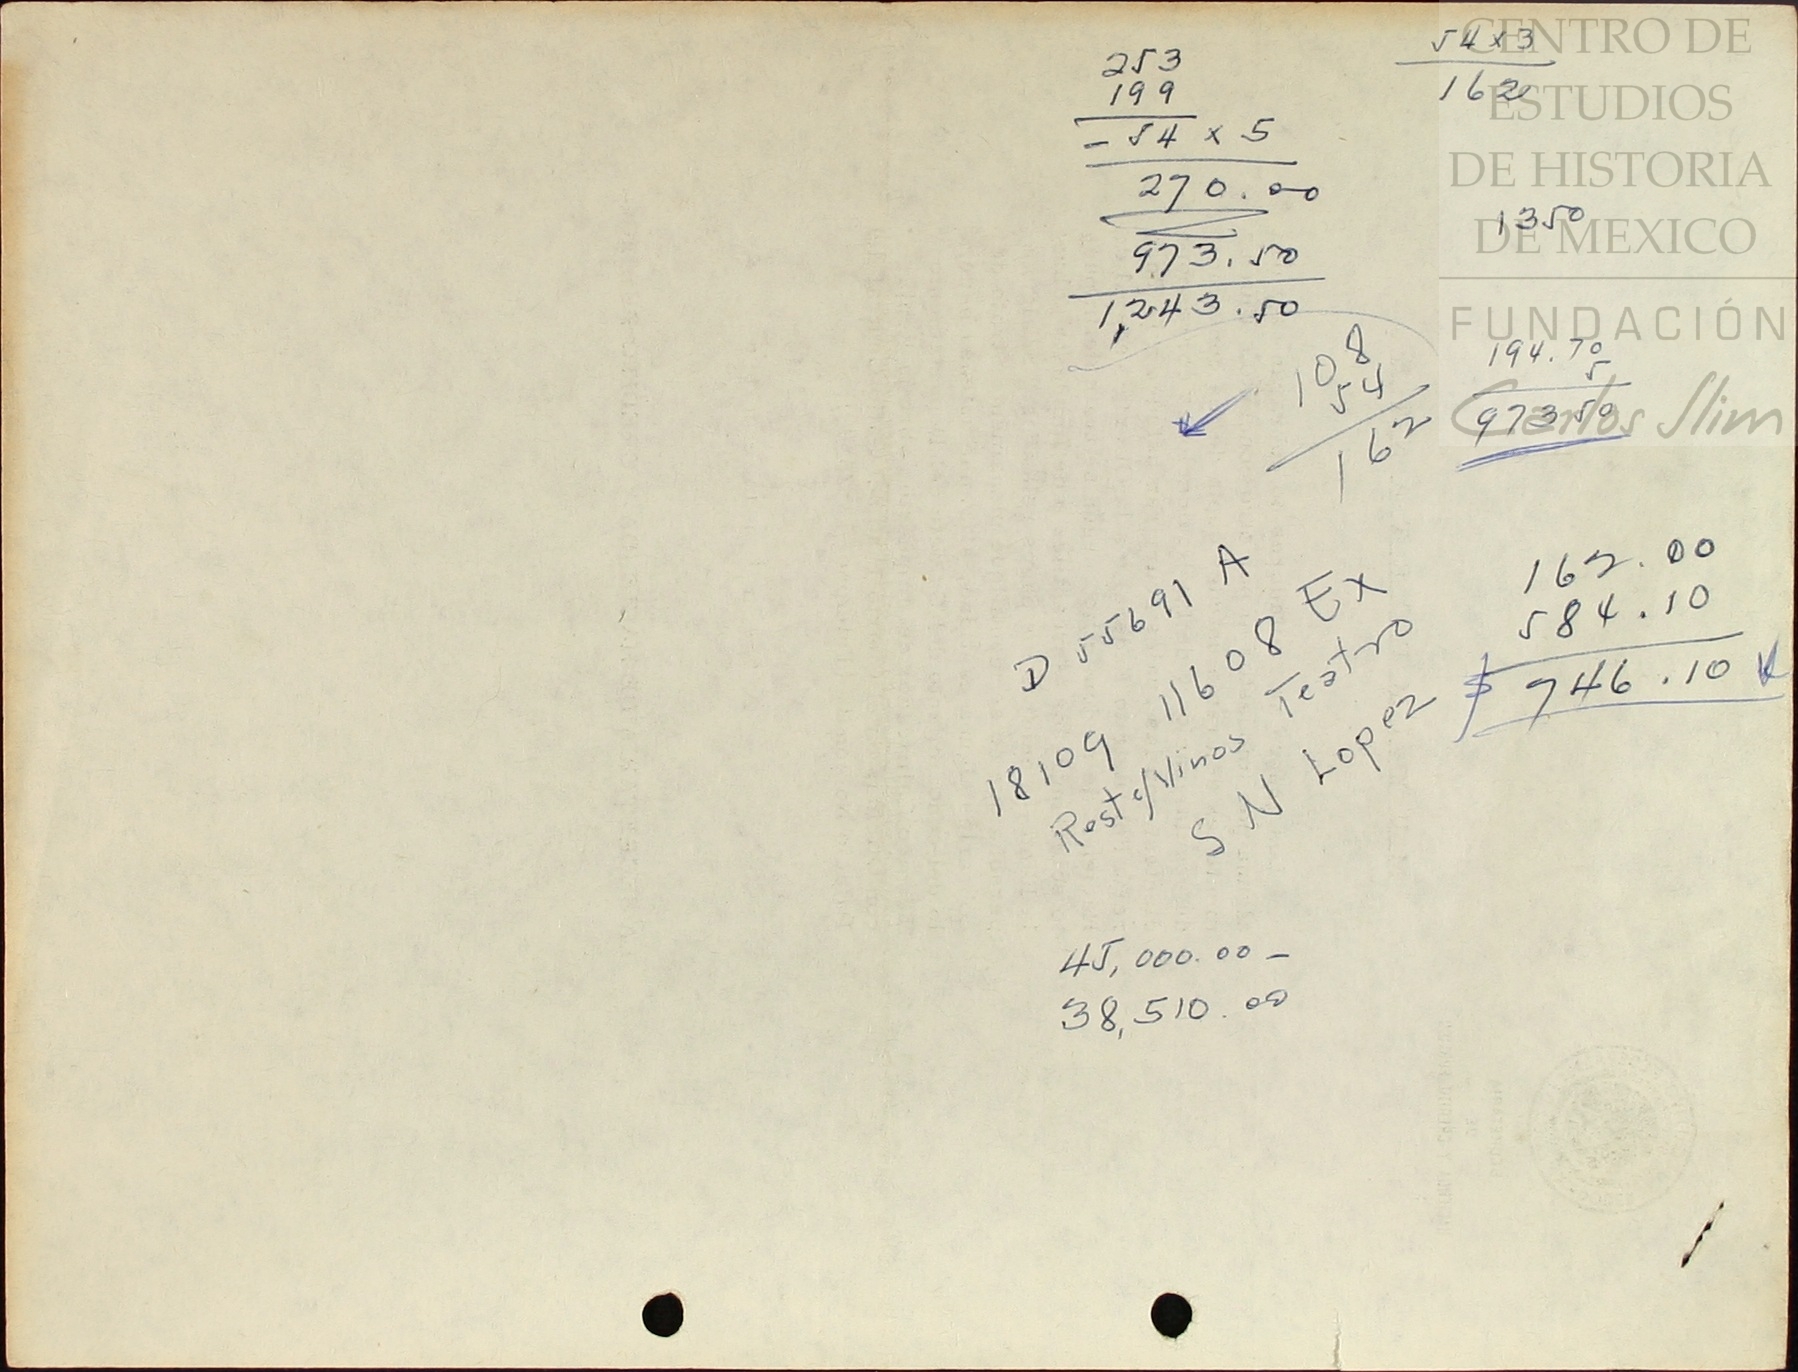 253
199
- 54 x 5
270.00
973.50
1,243.50
54 x 3
162
1350
CENTRO DE
ESTUDIOS
DE HISTORIA
DE MEXICO
FUNDACIÓN
Carlos Slim
108
54
162
194.70
5
973 50
162.00
584.10
$ 746.10
D 55691 A
18109 11608 Ex
Rest c/Vinos Teatro
S N Lopez
45,000.00 -
38,510.00